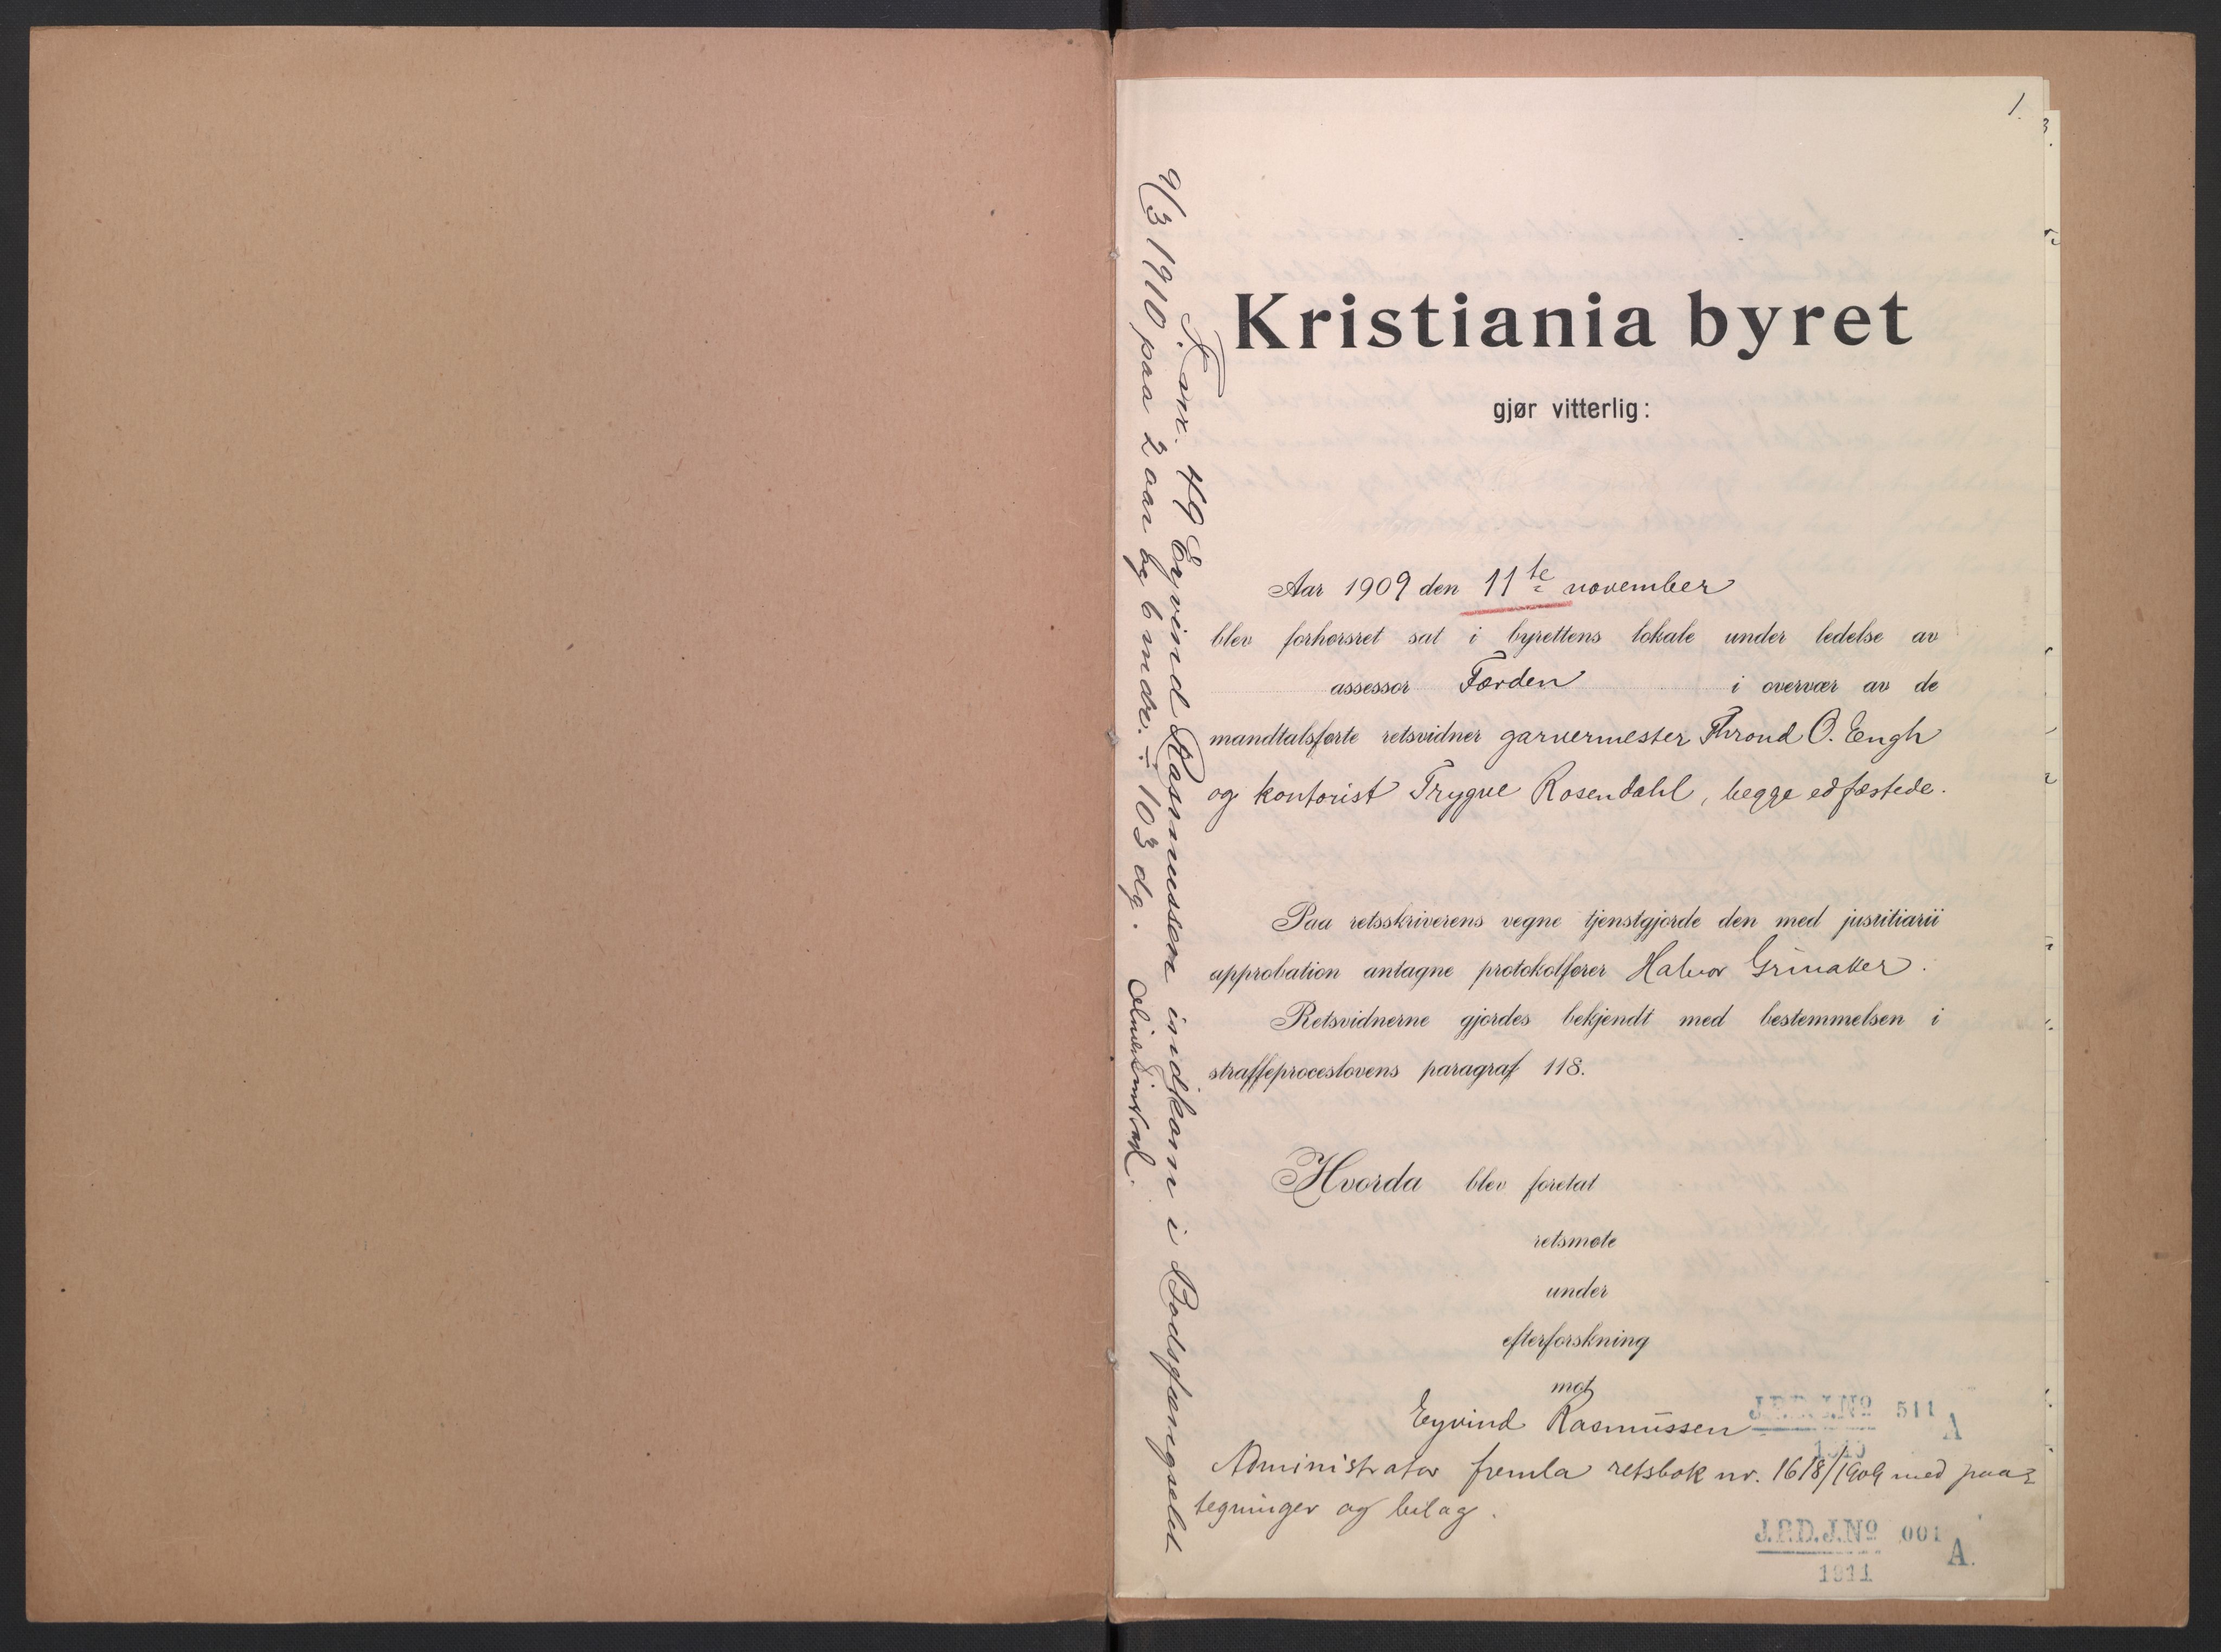 1.
Kristiania byret
gjør vitterlig:
Aar 1909 den 11te november
blev forhørsret sat i byrettens lokale under ledelse av
assessor Førden i overvær av de
mandtalsførte retsvidner garvermester Thrond O. Engh
og kontorist Trygve Rosendahl, begge edfæstede.
Paa retsskriverens vegne tjenstgjorde den med jusritiarii
approbation antagne protokolfører Halvor Grinaker.
Retsvidnerne gjordes bekjendt med bestemmelsen i
straffeproceslovens paragraf 118.
Hvorda blev foretat
retsmøte
under
efterforskning
mot
Eyvind Rasmussen
Administrator fremla retsbok nr. 1618/1909 med paa-
tegninger og bilag.
J.P.D.J.Nº 511 A
1910
J.P.D.J.Nº 001 A.
1911
F. nr. 49 Eyvind Rasmussen indkom i Bodsfængselet
9/3 1910 paa 2 aar og 6 mdr. ÷ 103 dg.